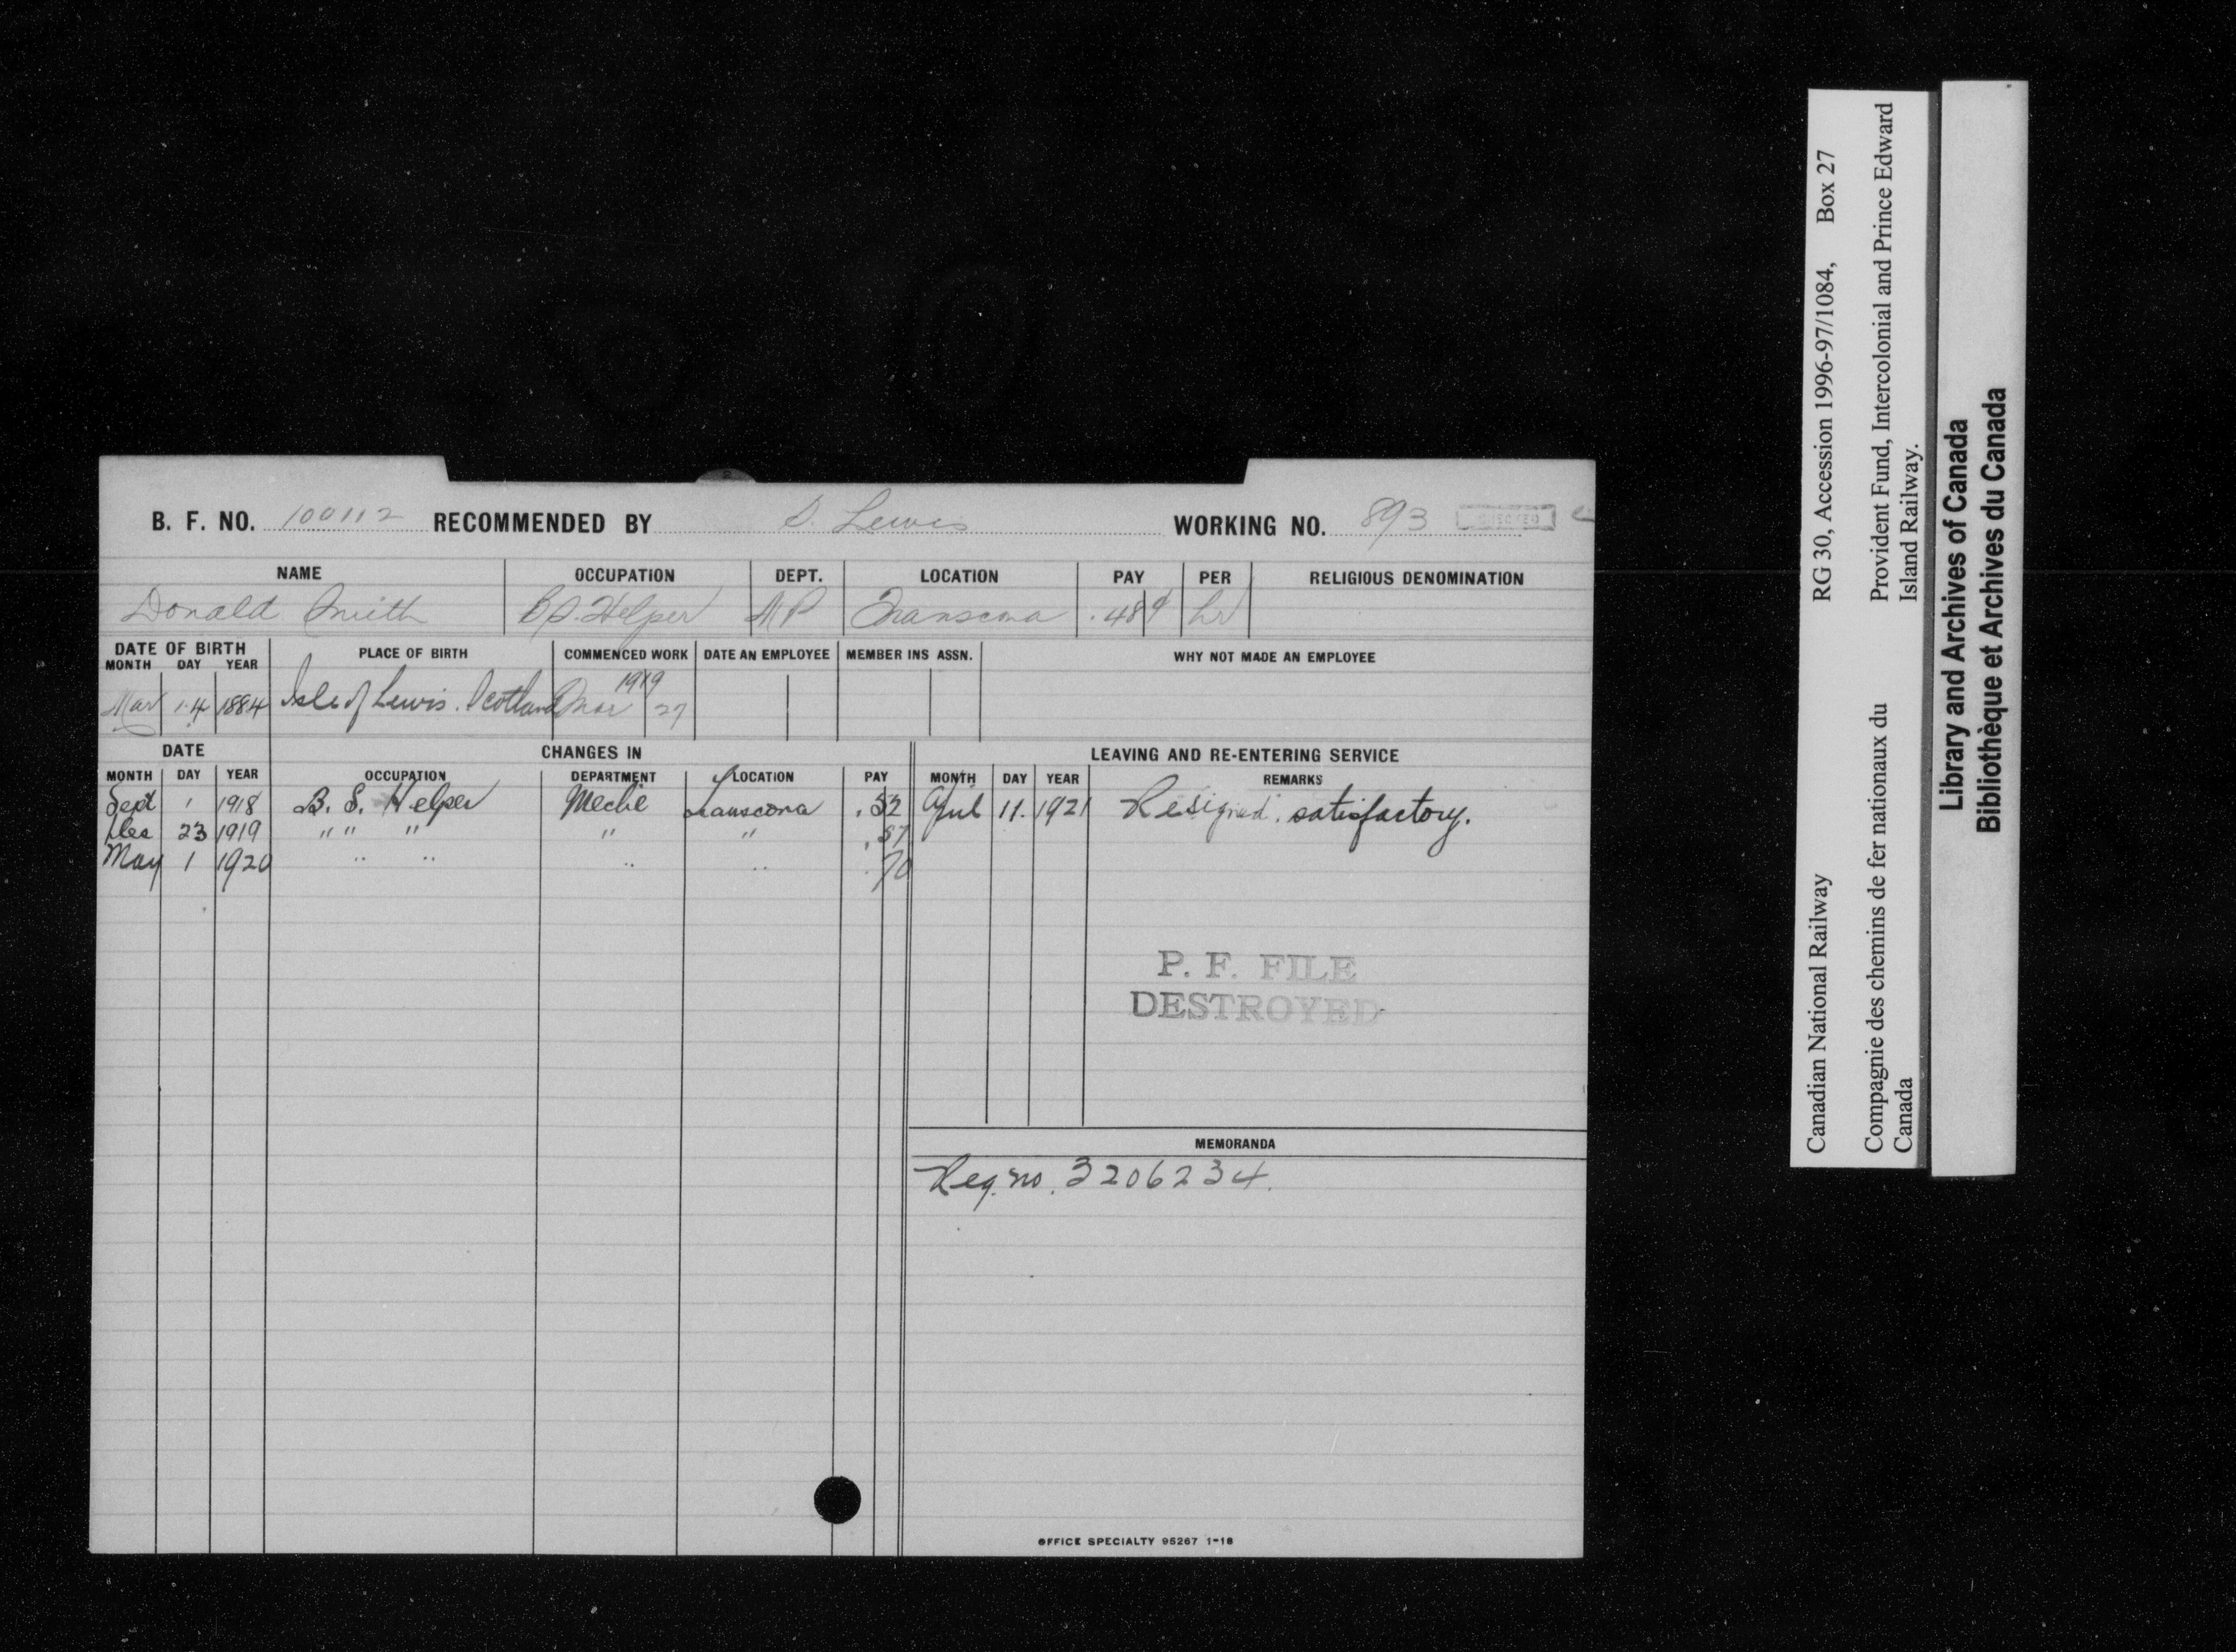 B. F. NO. 100112 RECOMMENDED BY D. Lewis WORKING NO. 893
NAME OCCUPATION DEPT. LOCATION PAY PER RELIGIOUS DENOMINATION
Donald Smith B.S. Helper MP Transcona .48¢ hr
DATE OF BIRTH PLACE OF BIRTH COMMENCED WORK DATE AN EMPLOYEE MEMBER INS ASSN. WHY NOT MADE AN EMPLOYEE
MONTH DAY YEAR
Mar 14 1884 Isle of Lewis. Scotland Mar 27 1919
DATE CHANGES IN LEAVING AND RE-ENTERING SERVICE
MONTH DAY YEAR OCCUPATION DEPARTMENT LOCATION PAY MONTH DAY YEAR REMARKS
Sept 1 1918 B. S. Helper Mech'l Transcona .52 April 11. 1921 Resigned. satisfactory.
Dec 23 1919 " " " " " .57
May 1 1920 " " " " .70
P. F. FILE
DESTROYED
MEMORANDA
Reg. no. 3206234.
OFFICE SPECIALTY 95267 1-18
Canadian National Railway RG 30, Accession 1996-97/1084, Box 27
Compagnie des chemins de fer nationaux du Canada
Provident Fund, Intercolonial and Prince Edward Island Railway.
Library and Archives of Canada
Bibliothèque et Archives du Canada